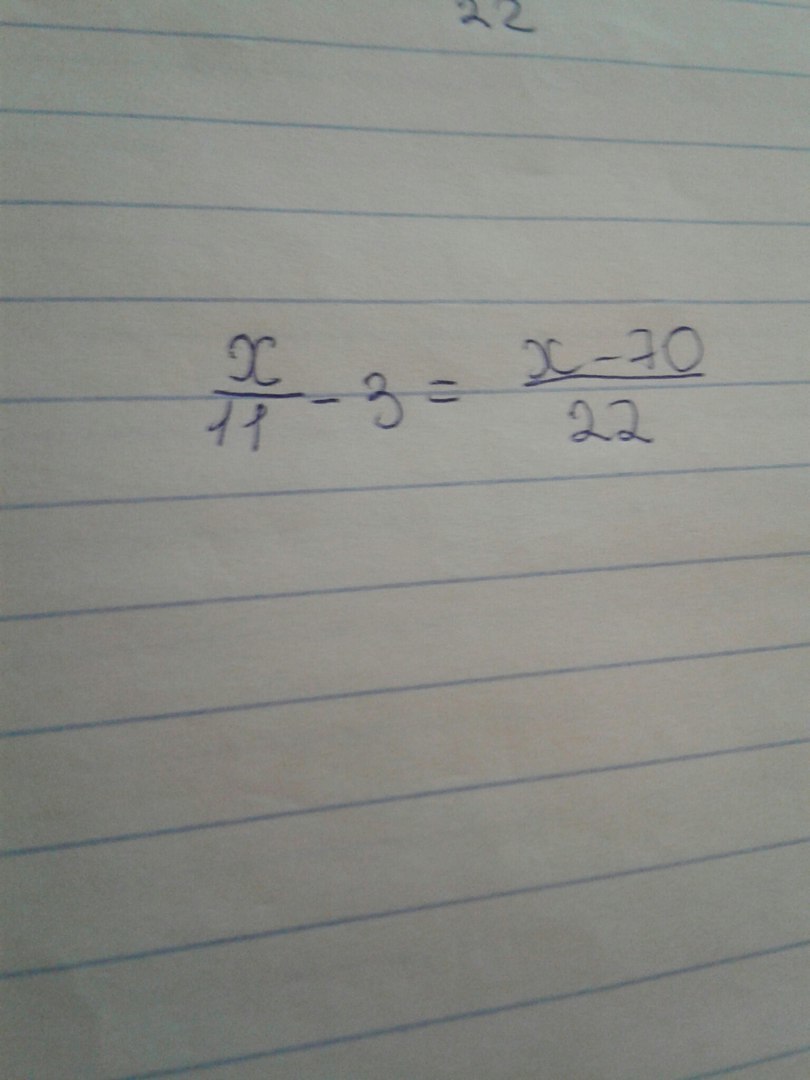 22
x/11 - 3 = x-70/22